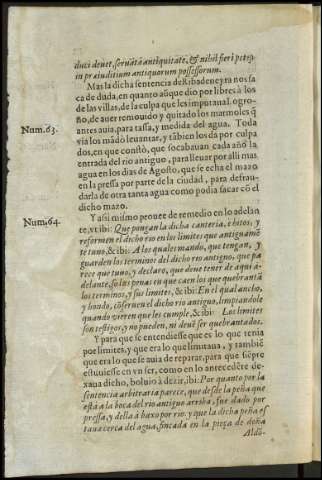 duci debet, seruata antiquitate, & nihil fieri potest
in præiuditium antiquorum possessorum.
Mas la dicha sentencia de Ribadeneyra nos sa
ca de duda, en quanto añque dio por libres à los
de las villas, de la culpa que les imputaua Logro-
ño, de auer remouido y quitado los marmoles q̃
Num.63. antes auia, para tassa, y medida del agua. Toda
via los mãdò leuantar, y tãbien los da por culpa
dos, en que constò, que socabauan cada año la
entrada del rio antiguo, para lleuar por alli mas
agua en los dias de Agosto, que se echa el mazo
en la pressa por parte de la ciudad, para defrau-
darla de otra tanta agua como podia sacar cõ el
dicho mazo.
Num.64. Y assi mismo prouee de remedio en lo adelan
te, vt ibi: Que pongan la dicha canteria, è hitos, y
reformen el dicho rio en los limites que antiguamẽ
te tuuo, & ibi: A los quales mando, que tengan, y
guarden los terminos del dicho rio antiguo, que pa
rece que tuuo, y declaro, que deue tener de aqui a-
delante, so las penas en que caen los que quebrantã
los terminos, y sus limites, & ibi: En el qual ancho,
y hondo, cõseruen el dicho rio antiguo, limpiandole
quando vieren que les cumple, & ibi: Los limites
son testigos, y no pueden, ni deuẽ ser quebrantados.
Y para que se entendiesse que es lo que tenia
por limites, y que era lo que limitaua, y tambiẽ
que era lo que se auia de reparar, para que siẽpre
estuuiesse en vn ser, como en lo antecedẽte de-
xaua dicho, boluio à dezir, ibi: Por quanto por la
sentencia arbitraria parece, que desde la peña que
està a la boca del rio antiguo arriba, fue dado por
pressa, y della à baxo por rio, y que la dicha peña es
taua cerca del agua, fincada en la pieza de doña
Aldõ-